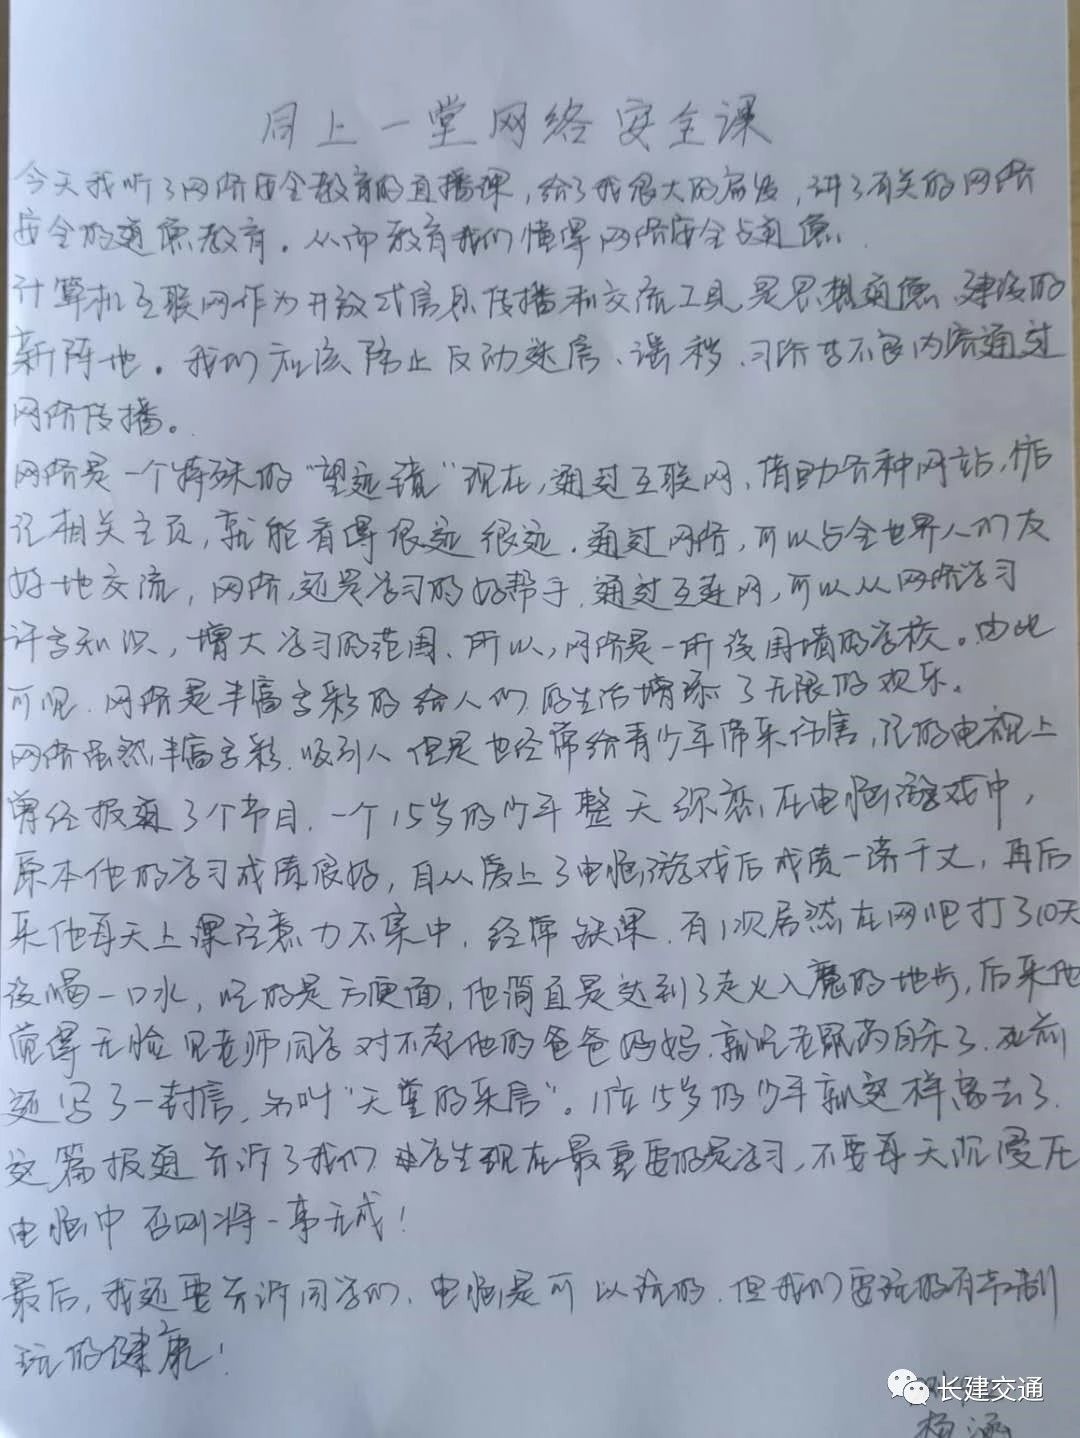 同上一堂网络安全课
今天我听了网络安全教育的直播课，给了我很大的启发，讲了有关的网络
安全的道德教育。从而教育我们懂得网络安全与道德.
计算机互联网作为开放式信息传播和交流工具是思想道德建设的
新阵地。我们应该防止反动迷信、谣
网络传播。
网络是一个特殊的“望远镜”现在，通过互联网、借助各种网站，
相关主页，就能看得很远很远。通过网络，可以与全世界人们友
好地交流，网络，还是学习的好帮手。通过互连网，可以从网络学习
许多知识，增大学习的范围、所以，网络是一所没围墙的学校。由此
可见.网络是丰富多彩的给人们的生活增添了无限的欢乐。
网络虽然丰富多彩.吸引人但是也经常给青少年带来伤害，记的电视上
曾经报道了个节目.一个15岁的少年整天迷恋在电脑游戏中，
原本他的学习成绩很好，自从爱上了电脑游戏后成绩一落千丈，再后
来他每天上课注意力不集中，经常缺课.有1次居然在网吧打了10天
没喝一口水，吃的是方便面，他简直是达到了走火入魔的地步，后来他
觉得无脸见老师同学对不起他的爸爸妈妈.就吃老鼠药自杀了.死前
还写了一封信，名叫“天堂的来信”。1位15岁的少年就这样离去了.
这篇报道告诉了我们学生现在最重要的是学习，不要每天沉浸在
电脑中否则将一事无成！
最后，我还要告诉同学们、电脑是可以玩的.但我们要玩的有节制
玩的健康！
长建交通
杨涵